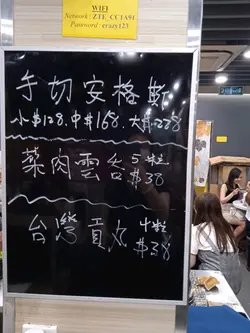 WIFI
Network: ZTE_CC1A91
Password: crazy123
手切安格斯
小$128.中$168.大$288
菜肉雲吞 5粒
$38
台灣貢丸 4粒
$38